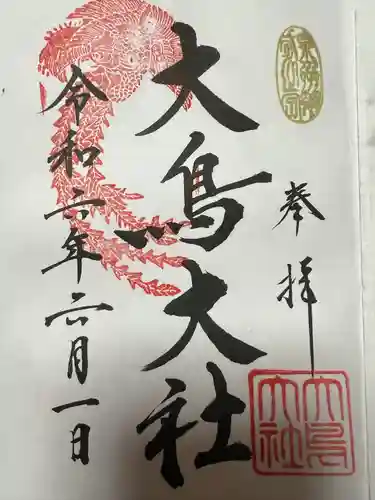 奉拝
大鳥大社
令和六年六月一日
大鳥大社